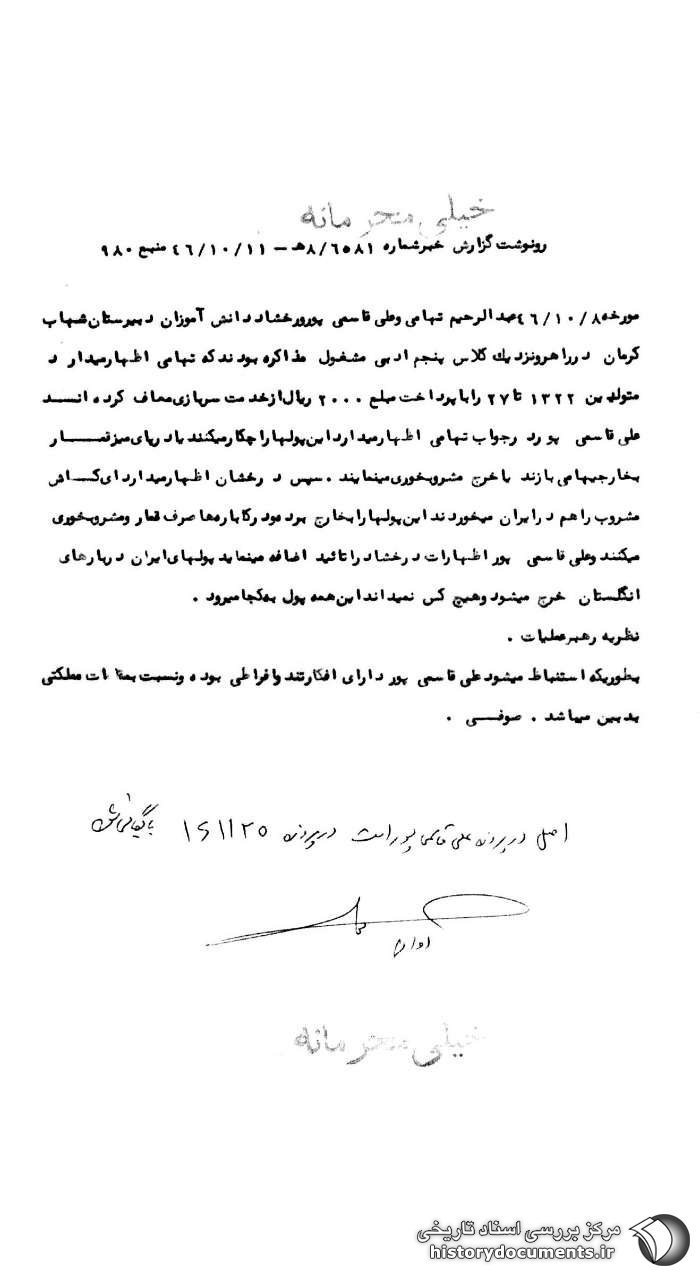 خیلی محرمانه
رونوشت گزارش خبرشماره ۸/۶۵۸۱هـ – ۴۶/۱۰/۱۱ منبع ۹۸۰
مورخه ۴۶/۱۰/۸عبدالرحیم تهامی وعلی قاسمی پورورخشاد دانش آموزان دبیرستان شهاب
کرمان درراهرونزدیك کلاس پنجم ادبی مشغول مذاکره بودندکه تهامی اظهارمیدارد
متولدین ۱۳۲۲ تا۲۷ رابا پرداخت مبلغ ۲۰۰۰ ریال ازخدمت سربازی معاف کرده انـــد
علی قاسمی پورد رجواب تهامی اظهارمیدارداین پولهاراچکارمیکنندیادرپای میزقمـــار
بخارجیهامی بازند یاخرج مشروبخوری مینمایند .سپس درخشان اظهارمیدارد ای کـــاش
مشروب راهم درایران میخوردنداین پولهارابخارج برده ودرکاباره‌ها صرف قمار ومشروبخوری
میکنند وعلی قاسمی پور اظهارات درخشاد راتائید اضافه مینماید پولهای ایران دربارهای
انگلستان خرج میشود وهیچ کس نمیداند این همه پول به‌کجا میرود .
نظریه رهبرعملیات .
بطوریکه استنباط میشود علی قاسمی پور دارای افکارتندوافراطی بوده ونسبت بمقامات مملکتی
بدبین میباشد . صوفـــی .
اصل در پرونده علی قاسمی پور است در پرونده ۱۶۱۱۲۵ بایگانی شود
خیلی محرمانه
مرکز بررسی اسناد تاریخی
historydocuments.ir